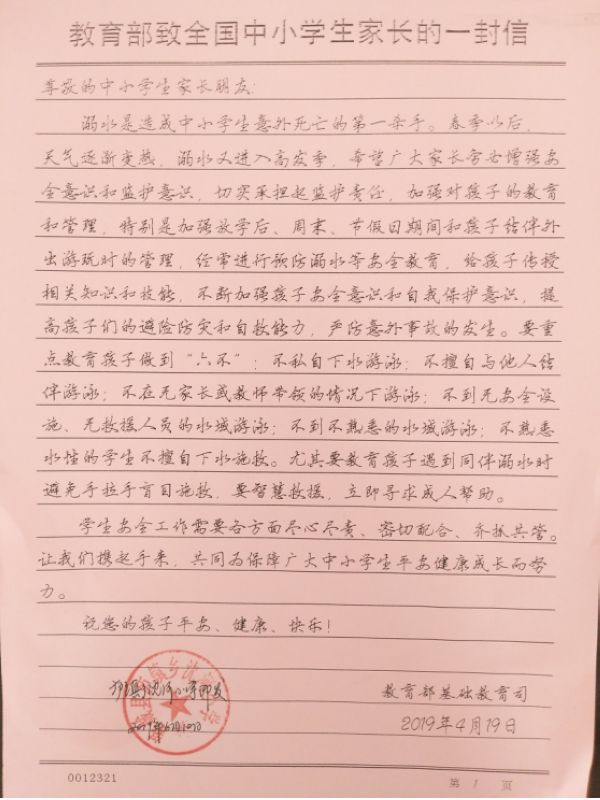 教育部致全国中小学生家长的一封信
尊敬的中小学生家长朋友:
溺水是造成中小学生意外死亡的第一杀手。春季以后,
天气逐渐变热,溺水又进入高发季,希望广大家长务必增强安
全意识和监护意识,切实承担起监护责任,加强对孩子的教育
和管理,特别是加强放学后、周末、节假日期间和孩子结伴外
出游玩时的管理,经常进行预防溺水等安全教育,给孩子传授
相关知识和技能,不断加强孩子安全意识和自我保护意识,提
高孩子们的避险防灾和自救能力,严防意外事故的发生。要重
点教育孩子做到“六不”:不私自下水游泳;不擅自与他人结
伴游泳;不在无家长或教师带领的情况下游泳;不到无安全设
施、无救援人员的水域游泳;不到不熟悉的水域游泳;不熟悉
水性的学生不擅自下水施救。尤其要教育孩子遇到同伴溺水时
避免手拉手盲目施救,要智慧救援,立即寻求成人帮助。
学生安全工作需要各方面尽心尽责、密切配合、齐抓共管。
让我们携起手来,共同为保障广大中小学生平安健康成长而努
力。
祝您的孩子平安、健康、快乐!
教育部基础教育司
2019年4月19日
0012321
第 1 页